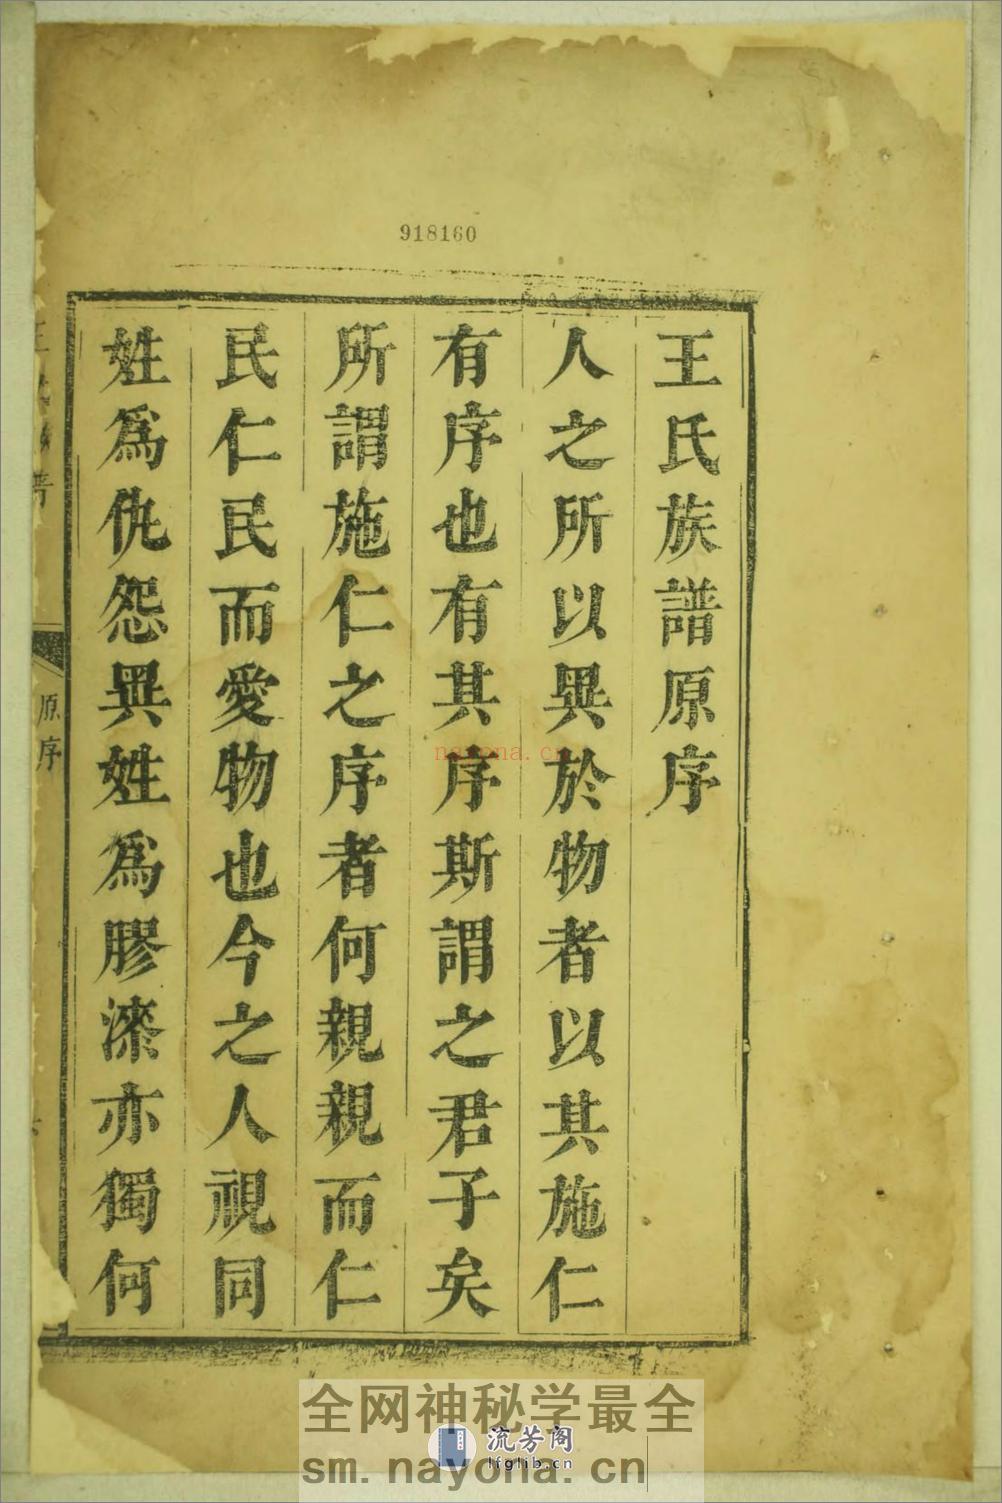 918160
王氏族譜原序
人之所以異於物者以其施仁
有序也有其序斯謂之君子矣
所謂施仁之序者何親親而仁
民仁民而愛物也今之人視同
姓爲仇怨異姓爲膠漆亦獨何
原序
nayona.cn
全网神秘学最全
流芳阁
lfglib.cn
sm.nayona.cn